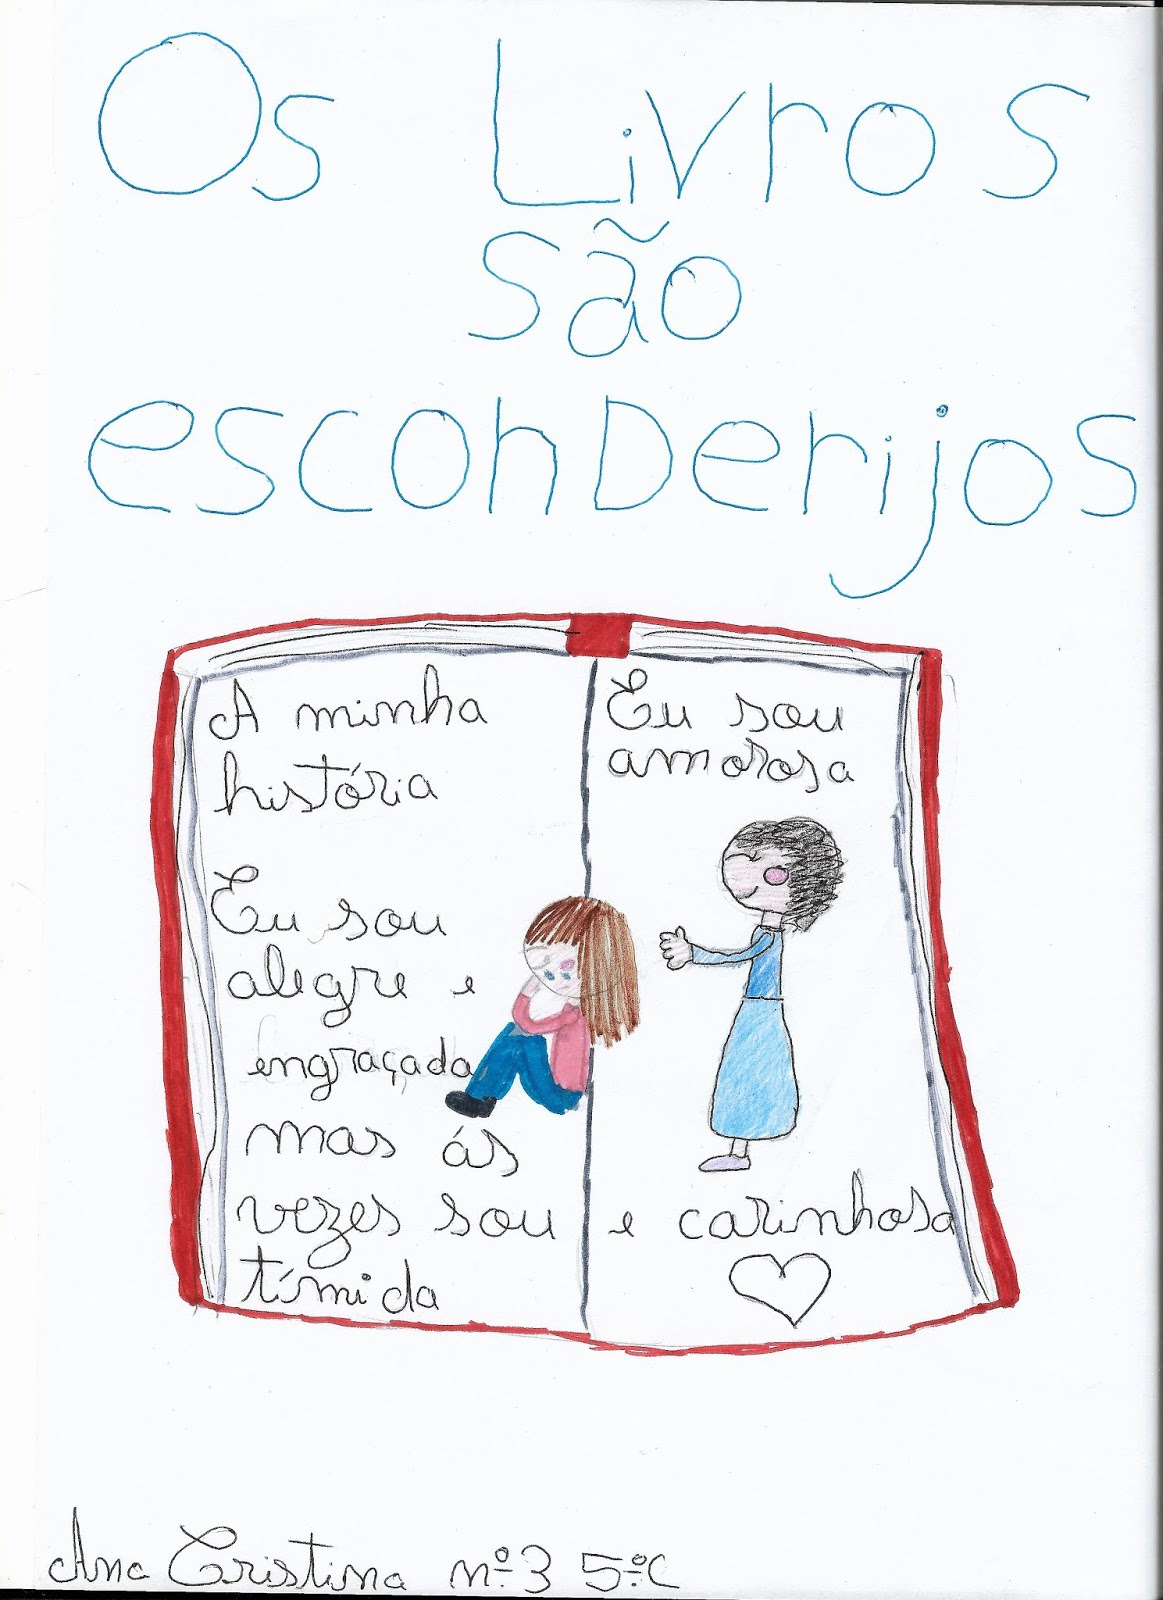 Os Livros
são
esconDerijos
A minha
história
Eu sou
alegre e
engraçada
mas ás
vezes sou
tímida
Eu sou
amorosa
e carinhosa
Ana Cristina nº3 5ºC